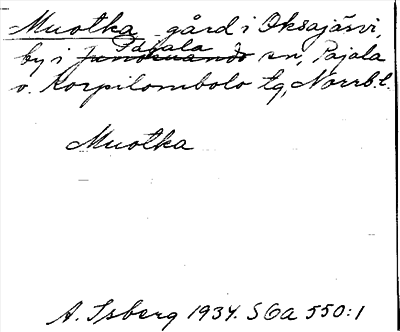 Muotka gård i Oksajärvi,
by i Junosuando Pajala sn, Pajala
o. Korpilombolo tg, Norrb. l.
Muotka
A. Isberg 1934. S6a 550:1